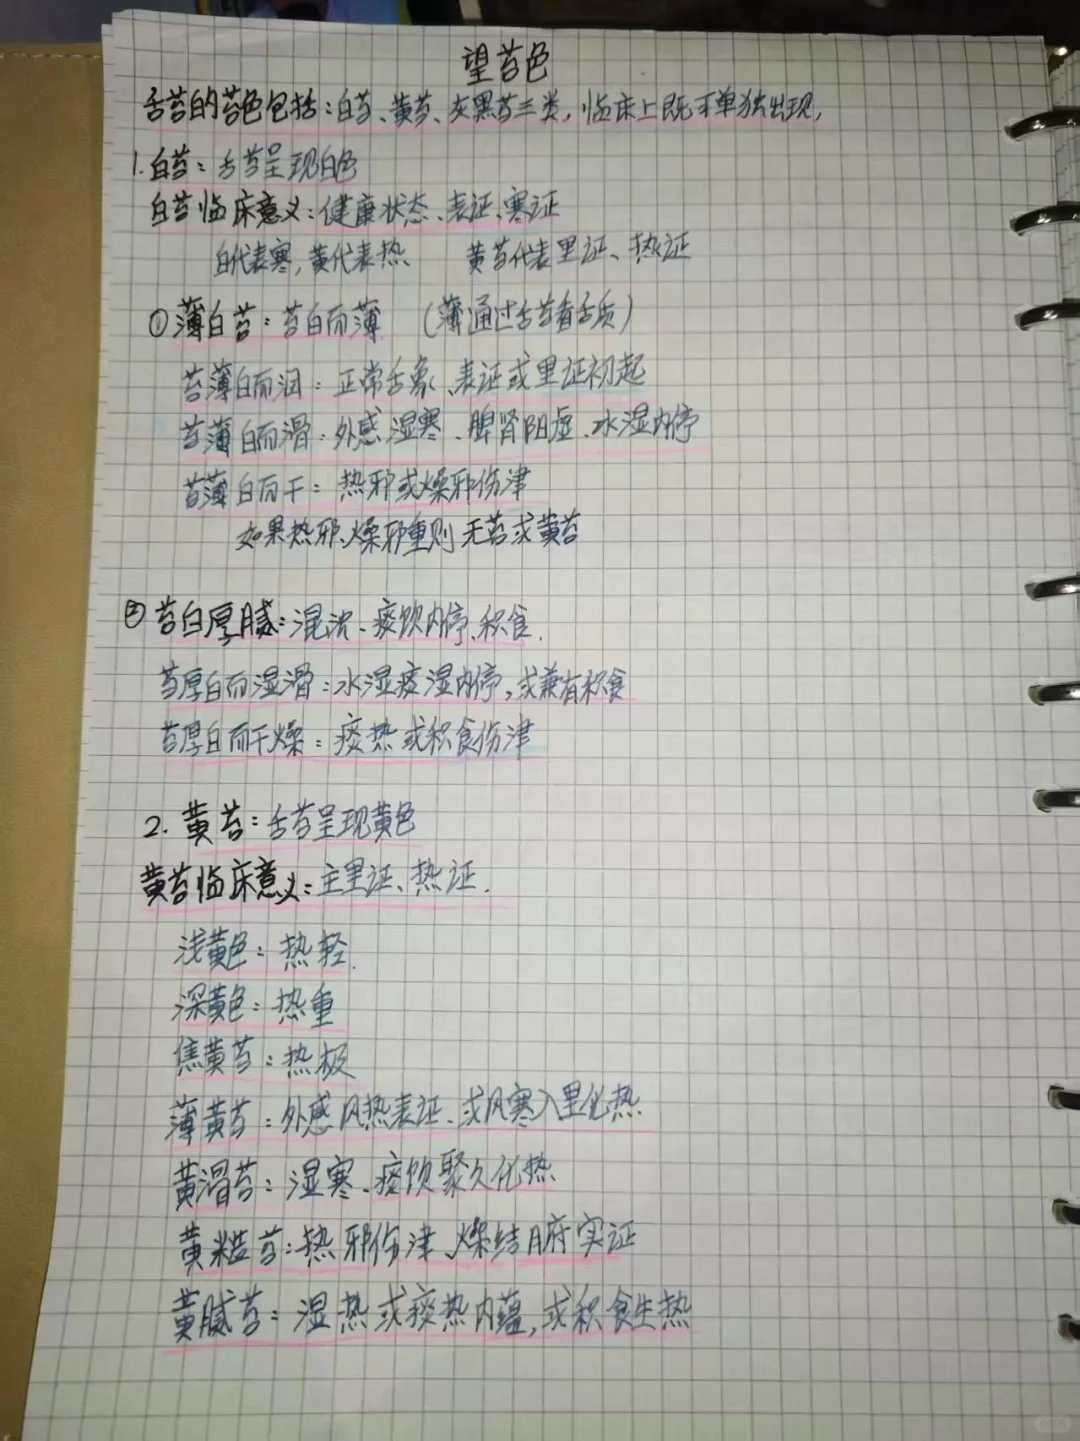 望苔色
舌苔的苔色包括：白苔、黄苔、灰黑苔三类，临床上既可单独出现，
1.白苔：舌苔呈现白色
白苔临床意义：健康状态、表证、寒证
白代表寒，黄代表热 黄苔代表里证、热证
①薄白苔：苔白而薄 （薄通过舌苔看舌质）
苔薄白而润：正常舌象、表证或里证初起
苔薄白而滑：外感湿寒、脾肾阳虚、水湿内停
苔薄白而干：热邪或燥邪伤津
如果热邪、燥邪重则无苔或黄苔
②苔白厚腻：湿浊、痰饮内停、积食.
苔厚白而湿滑：水湿痰湿内停，或兼有积食
苔厚白而干燥：痰热或积食伤津
2.黄苔：舌苔呈现黄色
黄苔临床意义：主里证、热证.
浅黄色：热轻.
深黄色：热重
焦黄苔：热极
薄黄苔：外感风热表证、或风寒入里化热
黄滑苔：湿寒、痰饮聚久化热
黄糙苔：热邪伤津、燥结腑实证
黄腻苔：湿热或痰热内蕴，或积食生热